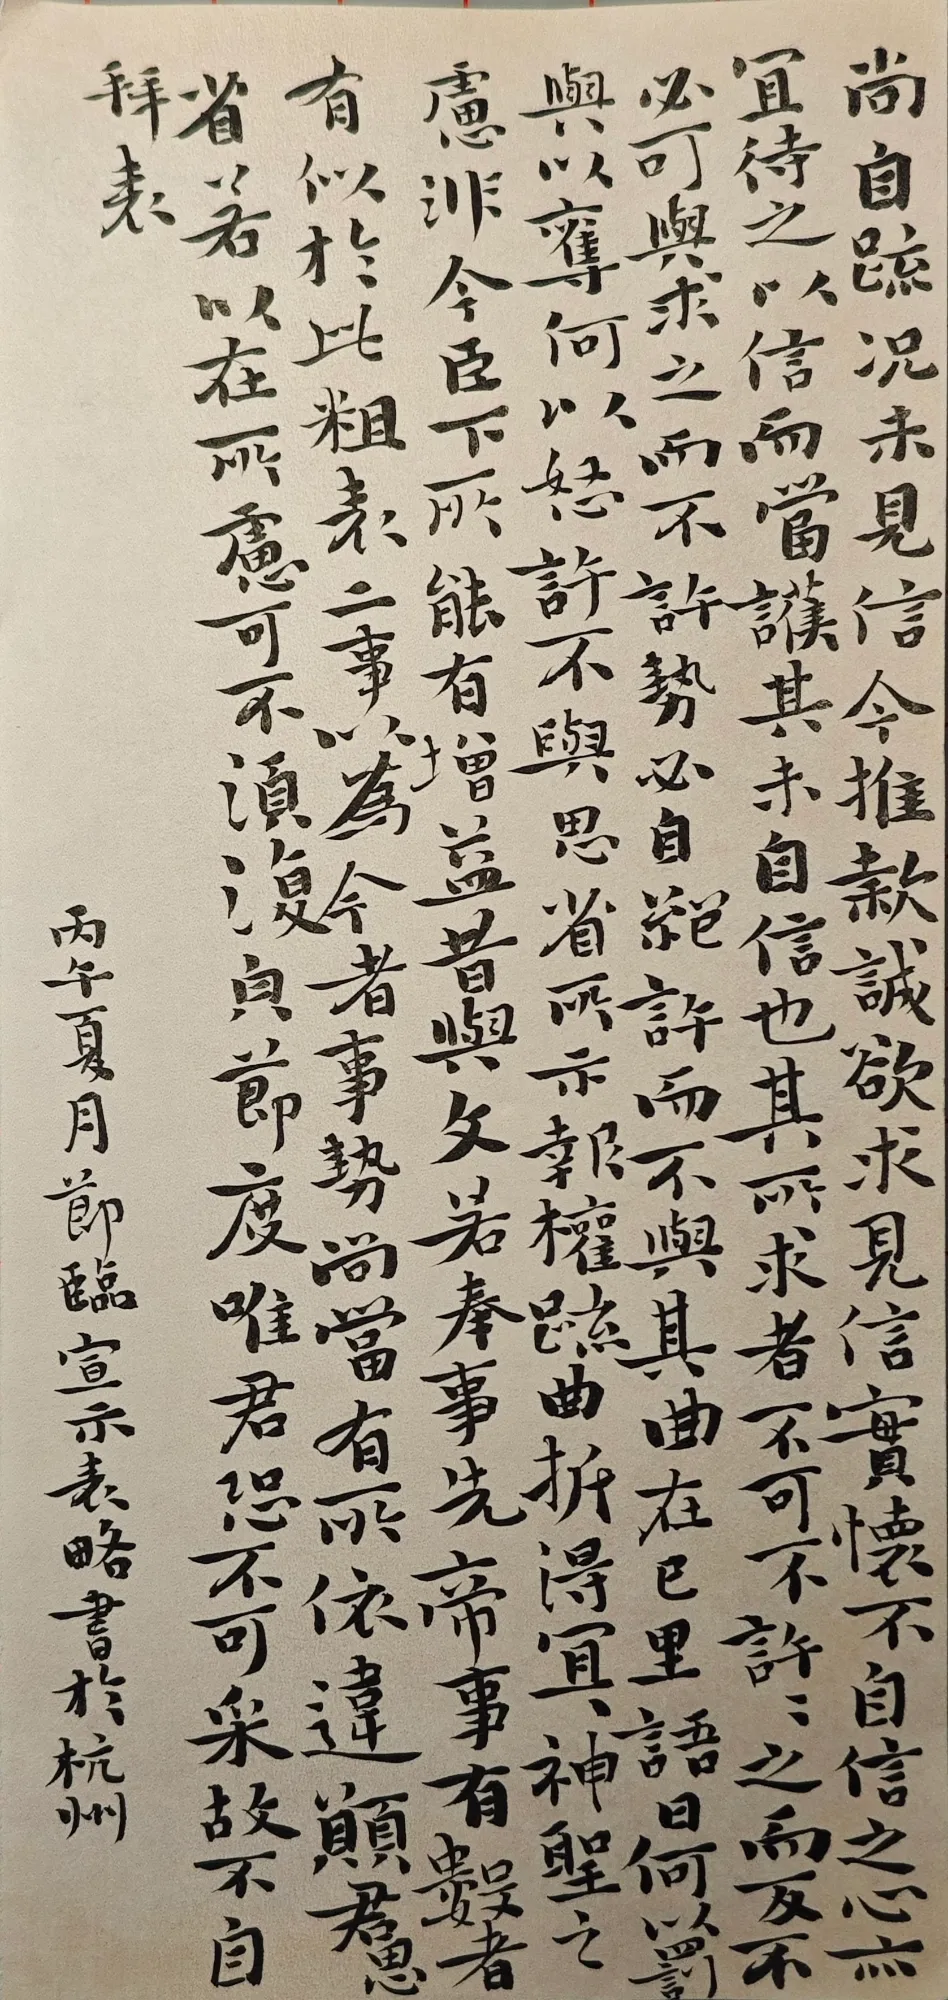 尚自疏况未見信今推款誠欲求見信實懷不自信之心亦
宜待之以信而當護其未自信也其所求者不可不許〻之而反不
必可與求之而不許勢必自絕許而不與其曲在已里語曰何以罰
與以奪何以怒許不與思省所示報權疏曲折得宜〻神聖之
慮非今臣下所能有增益昔與文若奉事先帝事有數者
有似於此粗表二事以為今者事勢尚當有所依違顛君思
省若以在所慮可不須復皃節度唯君恐不可采故不自
拜表
丙午夏月節臨宣示表略書於杭州